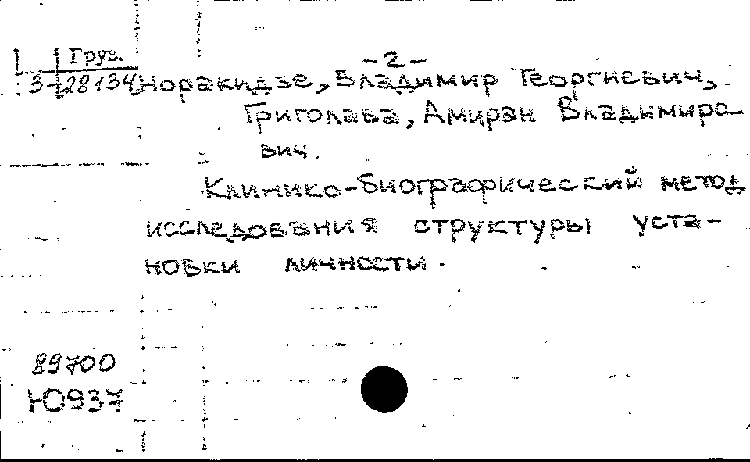 Груз. -2-
3-28134 Норакидзе, Владимир Георгиевич,
Григолава, Амиран Владимиро-
вич.
Клинико-биографический метод
исследования структуры уста-
новки личности.
89700
Ю937